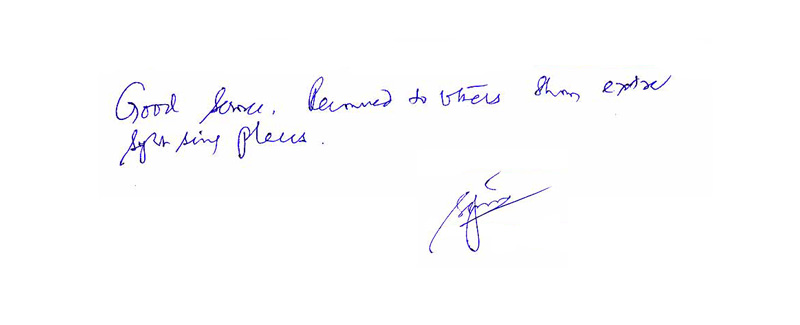 Good Service. Recommed to others Show extra
sight seing places.